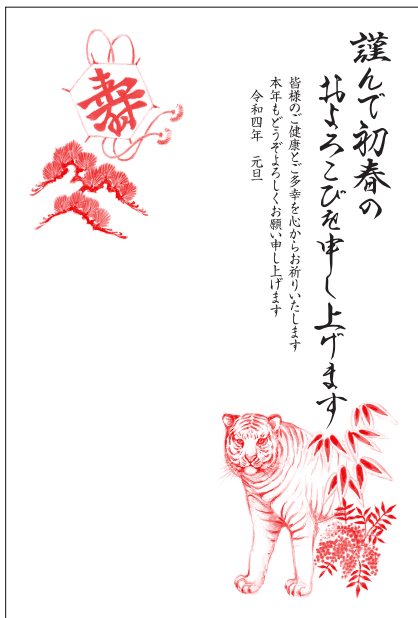 謹んで初春の
およろこびを申し上げます
皆様のご健康とご多幸を心からお祈りいたします
本年もどうぞよろしくお願い申し上げます
令和四年　元旦
寿